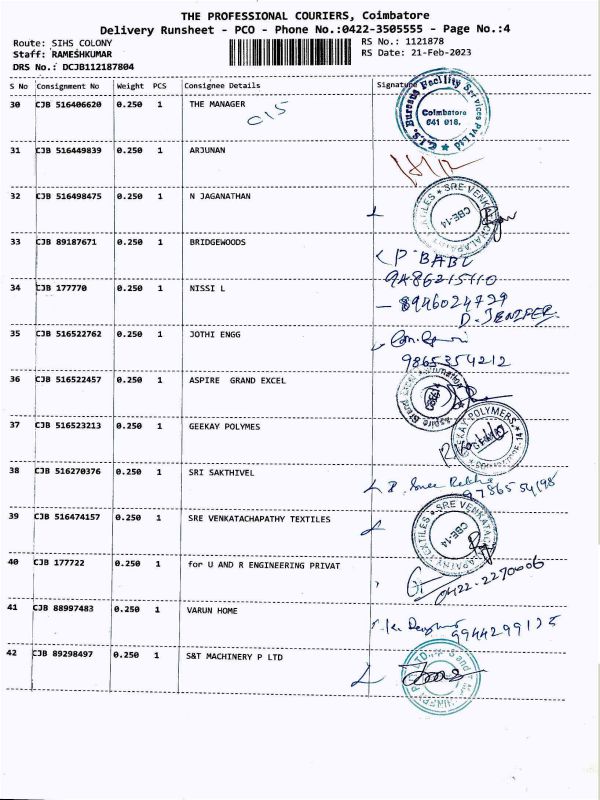 THE PROFESSIONAL COURIERS, Coimbatore
Delivery Runsheet - PCO - Phone No.:0422-3505555 - Page No.:4
Route: SIHS COLONY RS No.: 1121878
Staff: RAMESHKUMAR RS Date: 21-Feb-2023
DRS No.: DCJB112187804
S No Consignment No Weight PCS Consignee Details Signature
30 CJB 516406620 0.250 1 THE MANAGER C15
G.I.S. Bureau Facility Services Pvt Ltd
Coimbatore
641 018.
31 CJB 516449839 0.250 1 ARJUNAN
32 CJB 516498475 0.250 1 N JAGANATHAN
SRE VENKATACHALAPATHY TEXTILES
CBE-14
33 CJB 89187671 0.250 1 BRIDGEWOODS
P BABU
9486215110
34 CJB 177770 0.250 1 NISSI L
8946024729
D. JENIFER
35 CJB 516522762 0.250 1 JOTHI ENGG
9865354212
36 CJB 516522457 0.250 1 ASPIRE GRAND EXCEL
Aspire Grand Excel Automation
37 CJB 516523213 0.250 1 GEEKAY POLYMES
GEEKAY POLYMERS
38 CJB 516270376 0.250 1 SRI SAKTHIVEL
9786554198
39 CJB 516474157 0.250 1 SRE VENKATACHAPATHY TEXTILES
SRE VENKATACHALAPATHY TEXTILES
CBE-14
40 CJB 177722 0.250 1 for U AND R ENGINEERING PRIVAT
0422-2270606
41 CJB 88997483 0.250 1 VARUN HOME
9944299135
42 CJB 89298497 0.250 1 S&T MACHINERY P LTD